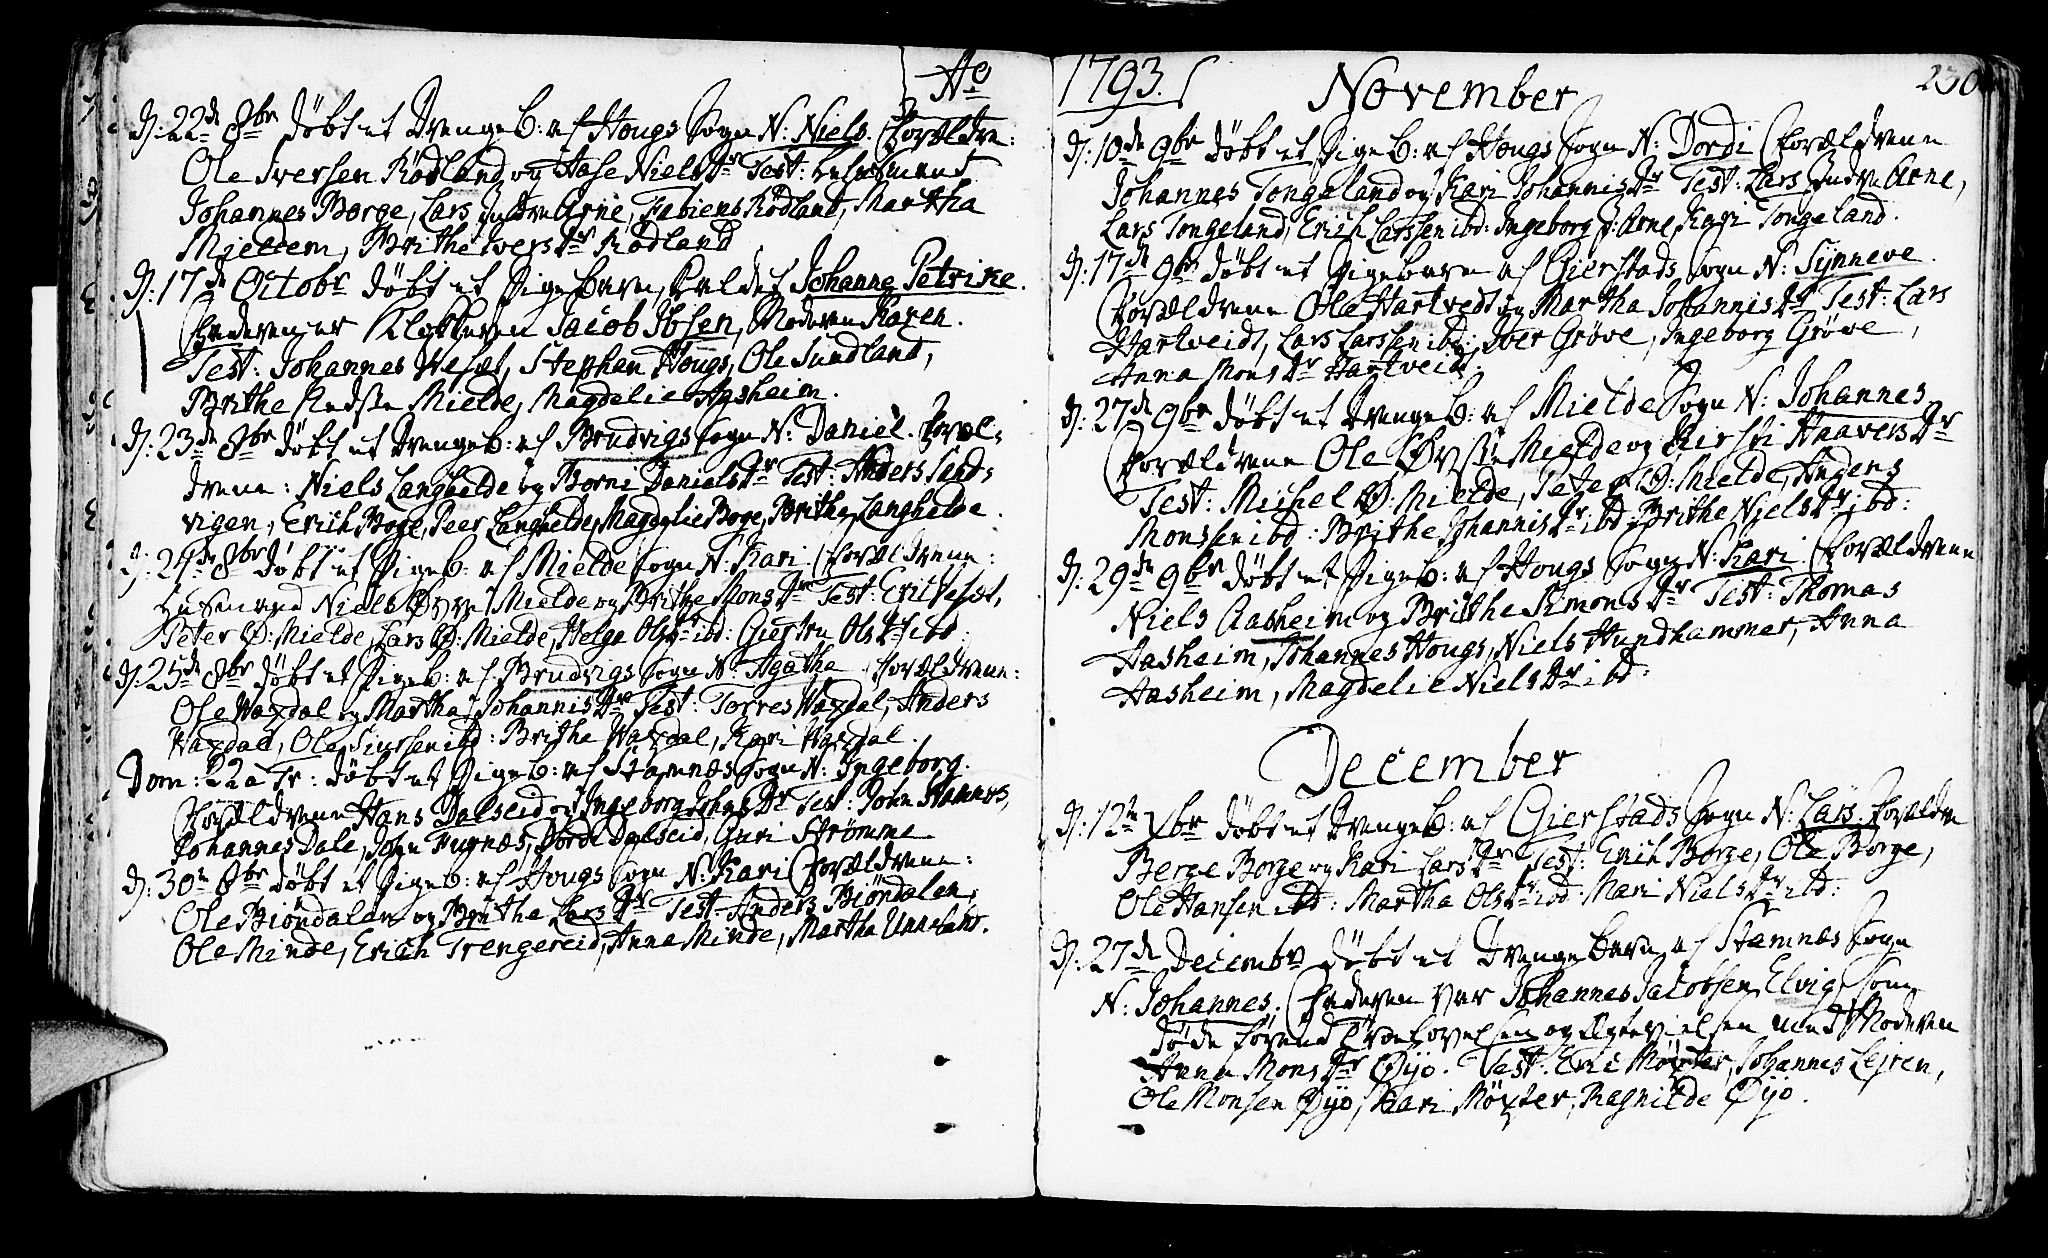 Ao
d: 22de 8br döbt et Drengeb: af Hougs Sogn N: Niels. Forældre:
Ole Iversen Rödland og Aase NielsDr Test:
Johannes Borge, Lars Indre Arne, Fabiens Rödland, Martha
Mieldem, Brithe IversDr Rödland
d: 17de Octobr döbt et Pigebarn, kaldet Johanne Petrike.
Faderen er Klokkeren Jacob Ibsen, Moderen Karen.
Test: Johannes Wesæt, Stephan Hougs, Ole Sundland,
Brithe Mielde, Magdelie Aasheim.
d: 23de 8br döbt et Drengeb: af Brudvigs Sogn N: Daniel. Foræl-
drene: Niels Langhelde og Borni DanielsDr Test: Anders Sand-
vigen, Erich Boge, Peer Langhelde, Magdelie Boge, Brithe Langhelde.
d: 24de 8br döbt et Pigeb: af Mielde Sogn N: Kari Forældrene:
Husmand Niels Øvre Mielde og Brithe MonsDr Test: Erich Wesæt,
Peter Ø: Mielde, Lars Ø: Mielde, Helga OlsDr ibd: Giertru OlsDr ibd:
d: 25de 8br döbt et Pigeb: af Brudvigs Sogn N: Agathe. Forældrene:
Ole Waxdal og Martha JohannisDr Test: Torres Waxdal, Anders
Waxdal, Ole Siursen ibd: Brithe Waxdal, Kari Waxdal.
Dom: 22 a Tr: döbt et Pigeb: af Stamnæs Sogn N: Ingeborg.
Forældrene Hans Dalseid og Ingeborg JohnsDr Test: John Stamnæs,
Johannes Dale, John Fugnæs, Dorde Dalseid, Guri Strømme
d: 30te 8br döbt et Pigeb: af Hougs Sogn N: Kari Forældrene:
Ole Biöndalen og Brithe LarsDr Test Anders Biöndalen,
Ole Minde, Erich Trengereid, Anna Minde, Martha
1793.
230
November
d: 10de 9br döbt et Pigeb: af Hougs Sogn N: Dordi Forældrene
Johannes Tongeland og Kari JohannisDr Test: Lars Indre Arne,
Lars Tongeland, Erich Larssen ibd: Ingeborg I: Arne, Kari Tongeland.
d: 17de 9br döbt et Pigebarn af Gierstads Sogn N: Synneve.
Forældrene Ole Hartvedt og Martha JohannisDr Test: Lars
Hartveidt, Lars Larssen ibd: Iver Gröve, Ingeborg Gröve,
Anna MonsDr Hartveid.
d: 27de 9br döbt et Drengeb: af Mielde Sogn N: Johannes
Forældrene Ole Mielde og Kirsti HaaversDr
Test: Michel Ø: Mielde, Peter Ø: Mielde, Anders
Monssen ibd: Brithe JohannisDr ibd: Brithe NielsDr ibd:
d: 29de 9br döbt et Pigeb: af Hougs Sogn N: Kari. Forældrene
Niels Aasheim og Brithe SimonsDr Test: Thomas
Aasheim, Johannes Hougs, Niels Hundhammer, Anna
Aasheim, Magdelie NielsDr ibd:
December
d: 12te Xbr döbt et Drengeb: af Gierstads Sogn N: Lars. Forældre
Berge Borge og Kari LarsDr Test: Erich Borge, Ole Borge,
Ole Hansen ibd: Martha OlsDr ibd: Mari NielsDr ibd:
d: 27de Decembr döbt et Drengebarn af Stamnæs Sogn
N: Johannes. Faderen var Johannes Jacobsen Elvig som
döde förend Troelovelsen og Ægtevielsen med Moderen
Anna MonsDr Øyo. Test: Eric Möxter, Johannes Leiren,
Ole Monsen Øyo, Kari Möxter, Ragnilde Øyo.